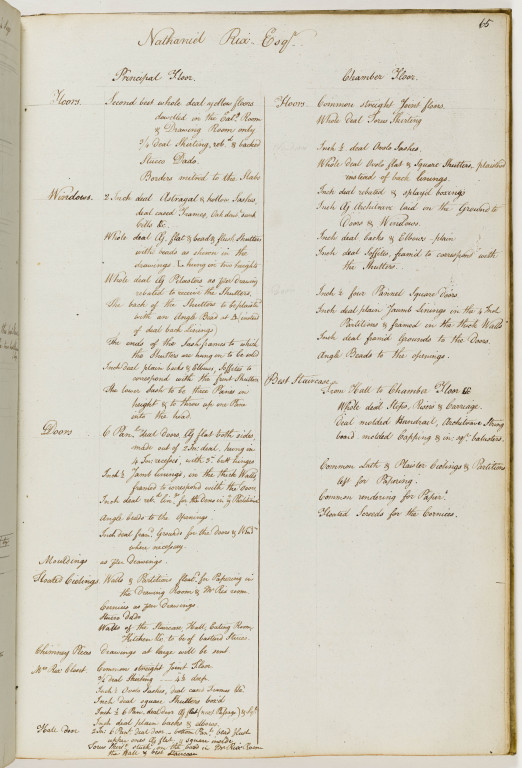 65
Nathaniel Rix Esqr.
Principal Floor.
Floors. Second best whole deal yellow floors
dowelled in the Eatg. Room
& Drawing Room only
3/4 deal Skirting, rebd. & backed
Stucco Dado.
Borders mitred to the Slabs
Windows. 2 Inch deal Astragal & hollow Sashes,
deal cased Frames, Oak
Cills &c.
Whole deal flat & bead & flush Shutters
with beads as shewn in the
drawings & hung in two heights
Whole deal Pilasters as per drawing
rebated to receive the Shutters.
The back of the Shutters to be plaistd.
with an Angle Bead at (instead
of deal back linings)
The ends of the Sash frames to which
the Shutters are hung on to be solid
Inch deal plain backs & Elbows, Soffites to
correspond with the front Shutters
The lower Sash to be three Panes in
height & to throw up one Pane
into the head.
Doors 6 Panl. deal doors flat both sides,
made out of 2 In. deal, hung in
4 In. recesses, with 5 In. butt hinges
Inch 1/2 Jamb linings, in the thick Walls
framed to correspond with the doors
Inch deal rebd. for the doors in ye Partitions
Angle beads to the openings.
Inch deal fram. Grounds for the doors & Winds.
where necessary.
Mouldings as per drawings.
Floated Ceilings, Walls & Partitions floatd. for Papering in
the Drawing Room & Mr. Rix's room.
Cornices as per drawings
Stucco dado
Walls of the Staircase Hall, Eating Room
Kitchen &c. to be of bastard Stucco.
Chimney Pieces drawings at large will be sent.
Mrs. Rix Closet. Common straight Joint Floor.
3/4 deal Skirting 4 1/2 deep.
Inch 1/2 Ovolo Sashes, deal cased Frames &c.
Inch deal square Shutters
Inch 1/2 6 Panl. deal door flat (next Passage) &
Inch deal plain backs & elbows.
Hall door 2 In. 6 Panl. deal door - bottom Panl. bead flush
upper ones flat, square inside.
Torus stuck on the board in Mr. Rix's Room
the Hall & best Staircase
Chamber Floor.
Floors Common straight Joint floors.
Whole Deal Torus Skirting
Inch 1/2 deal Ovolo Sashes.
Whole deal Ovolo flat & Square Shutters, plaistered
instead of back linings.
Inch deal rebated & splayed boxings
Inch Architrave laid on the Ground to
Doors & Windows.
Inch deal backs & Elbows plain
Inch deal Soffites, framd. to correspond with
the Shutters.
Inch 1/2 four Pannel Square doors
Inch deal plain Jamb Linings in the 4 Inch
Partitions & framed in the thick Walls
Inch deal framd. Grounds to the Doors.
Angle Beads to the openings.
Best Staircase.
From Hall to Chamber Floor &c
Whole deal Steps, Risers & Carriage.
Deal molded Handrail, Architrave String
board molded Capping & in. sqr. balusters.
Common Lath & Plaister Ceilings & Partitions
left for Papering.
Common rendering for Paper.
Floated Screeds for the Cornices.